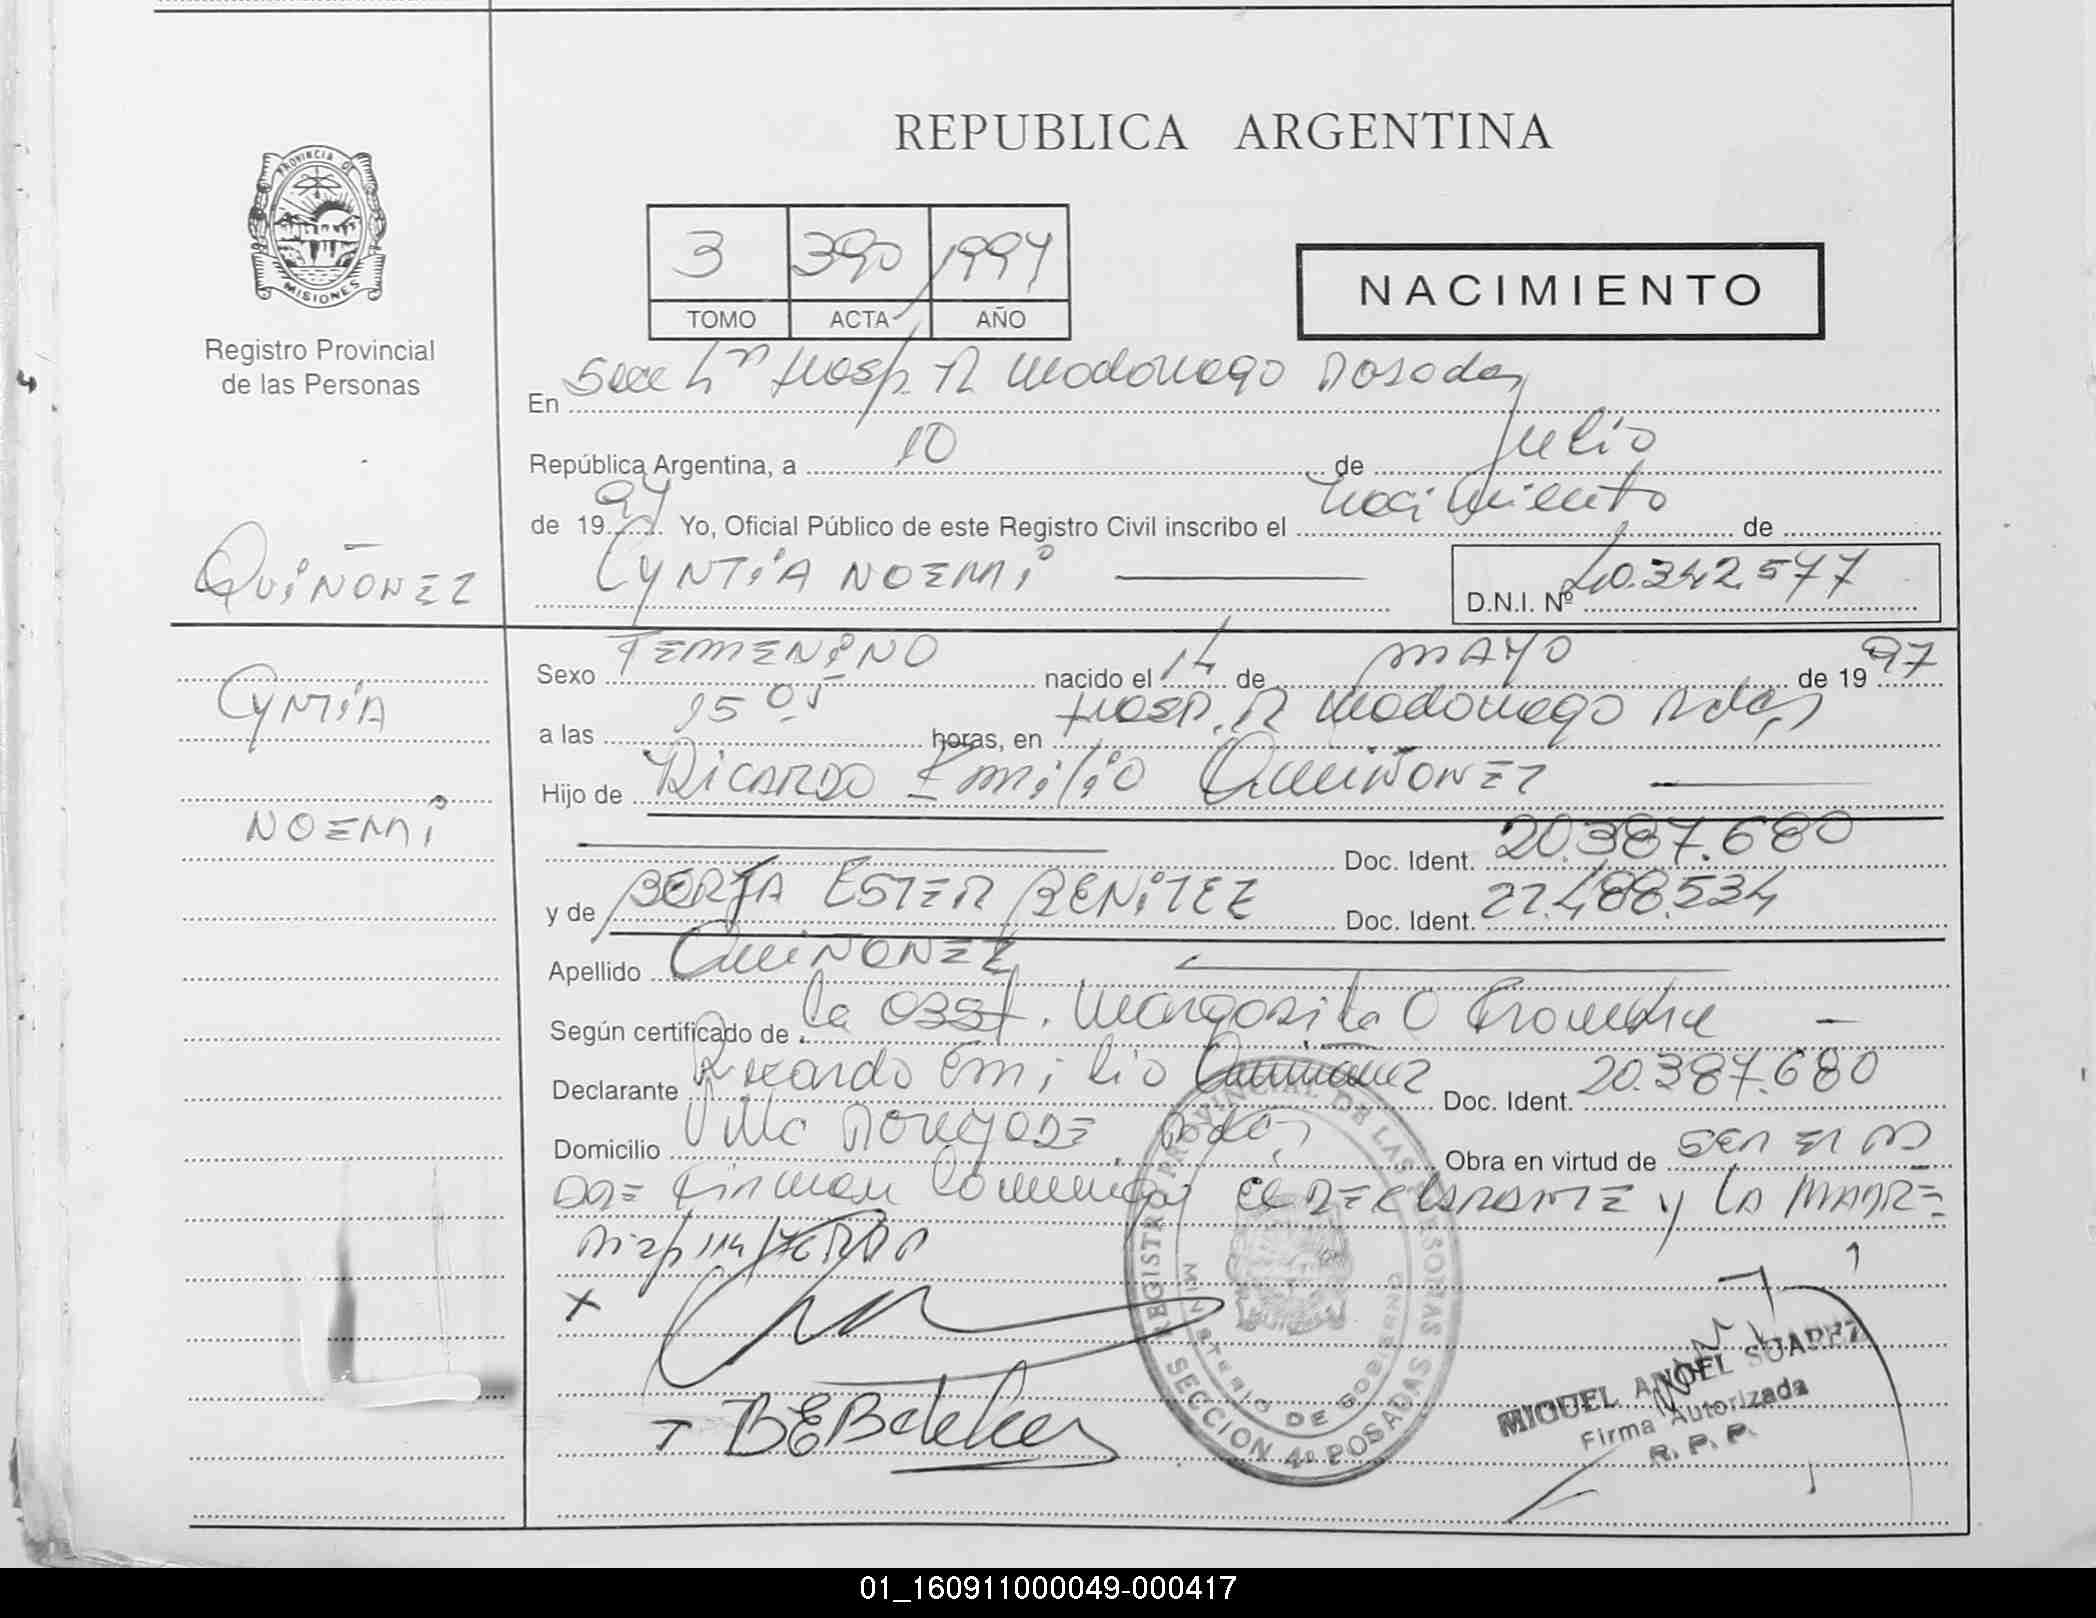 REPUBLICA ARGENTINA
PROVINCIA DE
MISIONES
Registro Provincial
de las Personas
3 390 1997
TOMO ACTA AÑO
NACIMIENTO
En Secc 4ta Hosp. R Madariaga Posadas
República Argentina, a 10 de Julio
de 1997 Yo, Oficial Público de este Registro Civil inscribo el nacimiento de
QUIÑONEZ
CYNTIA NOEMI
D.N.I. Nº 40.342.577
CYNTIA
NOEMI
Sexo FEMENINO nacido el 14 de MAYO de 1997
a las 15 05 horas, en Hosp. R Madariaga Pdas
Hijo de RICARDO EMILIO QUIÑONEZ
Doc. Ident. 20.387.680
y de BERTA ESTER BENITEZ Doc. Ident. 22.488.534
Apellido QUIÑONEZ
Según certificado de la Obst. Margarita O
Declarante Ricardo Emilio Quiñonez Doc. Ident. 20.387.680
Domicilio Villa Pdas Obra en virtud de SER EL PA
DRE Firman conmigo EL DECLARANTE y LA MADRE
REGISTRO PROVINCIAL DE LAS PERSONAS
MINISTERIO DE GOBIERNO
SECCION 4ª POSADAS
MIGUEL ANGEL SUAREZ
Firma Autorizada
R. P. P.
01_160911000049-000417